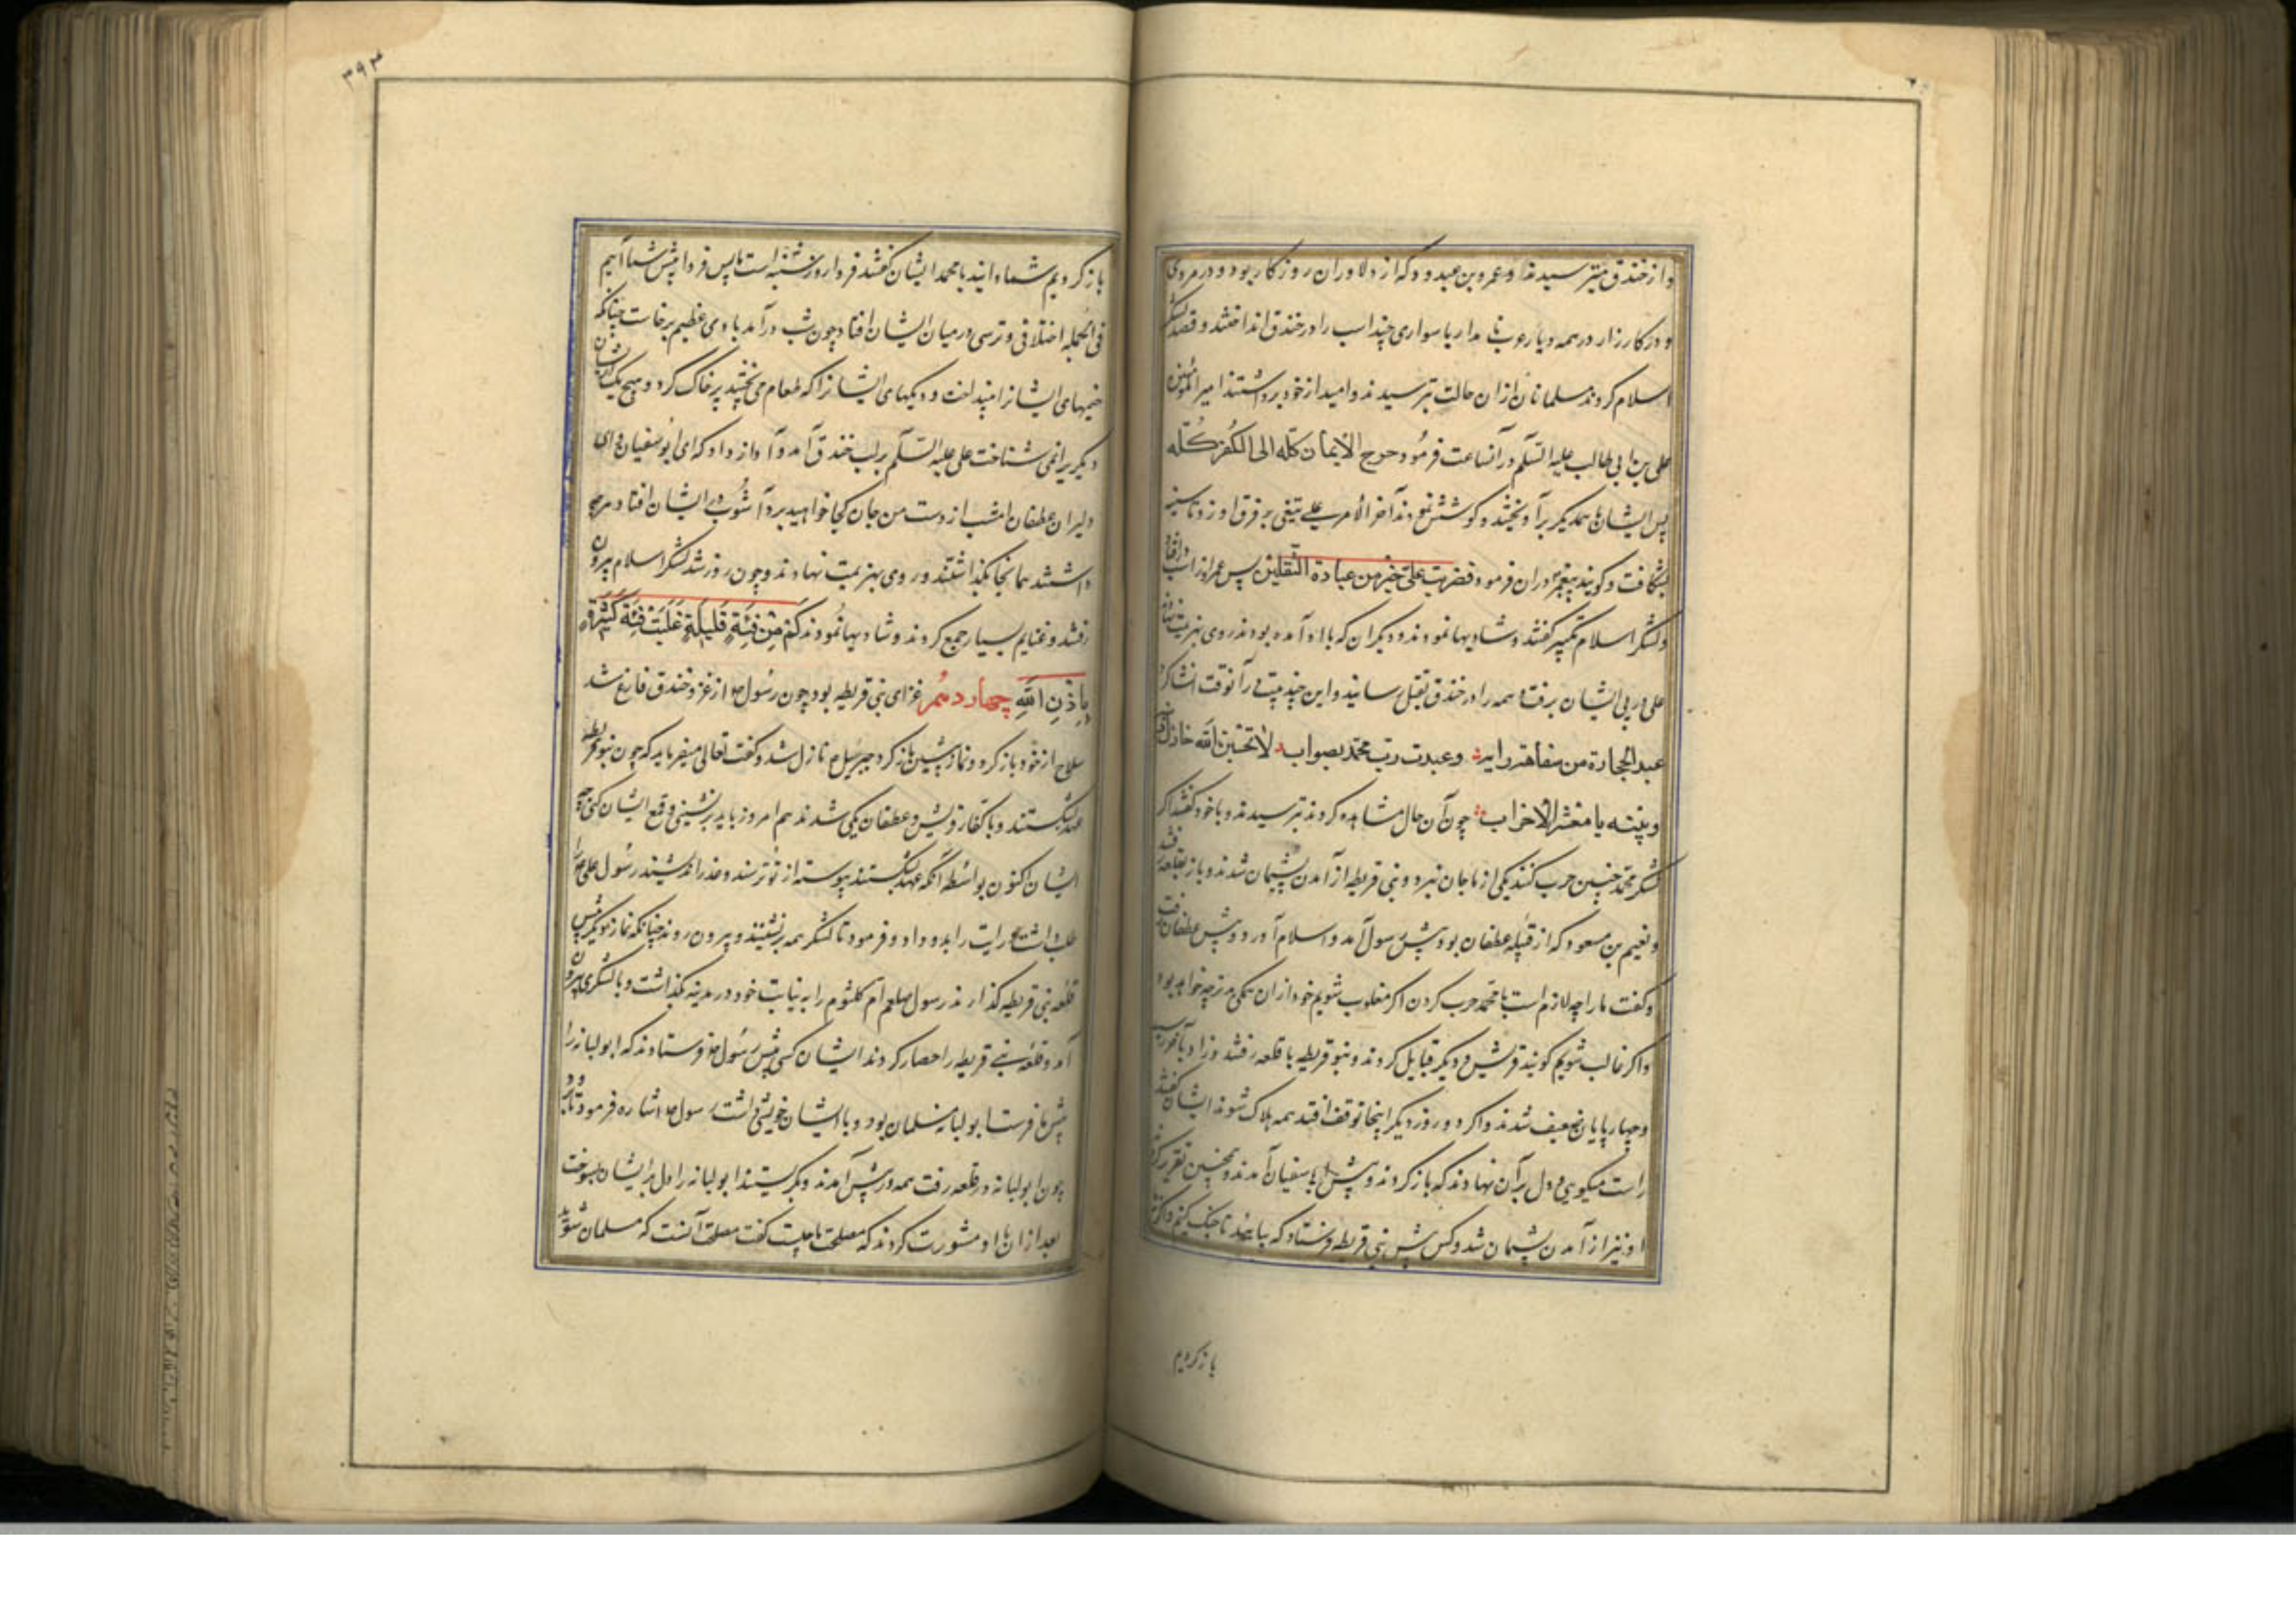 و از خندق میترسیدند و عمرو بن عبدود که از دلاوران روزکار بود و در مردی
و در کارزار در همه دیار عرب نامدار با سواری چند اسب را در خندق انداختند و قصد لشکر
اسلام کردند مسلمانان ازان حالت بترسیدند و امید از خود برداشتند امیر المؤمنین
علی بن ابی طالب علیه السلم در آنساعت فرمود خرج الایمان کله الی الکفر کله
پس ایشان با همدیگر برآویختند و کوشش نمودند آخر الامر علی تیغی بر فرق او زد تا سینه
بشکافت و کویند پیغمبر دران فرمود فضربت علی خیر من عبادة الثقلین پس عمر از اسب درافتاد
و لشکر اسلام تکبیر کفتند و شادیها نمودند و دیکران که با او آمده بودند روی بهزیمت نهادند
علی در پی ایشان برفت و همه را در خندق بقتل رسانید و این چند بیت در آنوقت انشا کرد
عبد الحجارة من سفاهة رایه وعبدت رب محمد بصواب لا تحسبن الله خاذل دینه
ونبیه یا معشر الاحزاب چون آن حال مشاهده کردند بترسیدند و با خود کفتند اکر
لشکر محمد چنین حرب کنند یکی از ما جان نبرد و بنی قریظه از آمدن پشیمان شدند و باز بقلعه رفتند
و نعیم بن مسعود که از قبیله عطفان بود پیش رسول آمد و اسلام آورد و پیش عطفان رفت
و کفت ما را چه لازم است با محمد حرب کردن اکر مغلوب شویم خود ازان بدتر چه خواهد بود
و اکر غالب شویم کویند قریش و دیکر قبایل کردند و بنو قریظه با قلعه رفتند و زاد بآخر رسید
و چهارپایان ضعیف شدند و اکر دو روز دیکر اینجا توقف افتد همه هلاک شوند ایشان کفتند
راست میکویی و دل بر آن نهادند که باز کردند و پیش ابا سفیان آمدند و همچنین تقریر کردند
او نیز از آمدن پشیمان شد و کس پیش بنی قریظه فرستاد که بیایید تا جنک کنیم و اکر نه
باز کردیم
۳۹۳
باز کردیم شما دانید با محمد ایشان کفتند فردا روز شنبه است تا پس فردا پیش شما آییم
فی الجمله اختلافی و ترسی در میان ایشان افتاد چون شب درآمد بادی عظیم برخاست چنانکه
خیمهای ایشانرا بینداخت و دیکهای ایشانرا که طعام می‌پختند پر خاک کرد و هیچ یک از ایشان
دیکریرا نمی شناخت علی علیه السلم بر لب خندق آمد و آواز داد که ای ابوسفیان و ای
دلیران عطفان امشب از دست من جان کجا خواهید برد آشوب در ایشان افتاد هرچه
داشتند همانجا بکذاشتند و روی بهزیمت نهادند و چون روز شد لشکر اسلام بیرون
رفتند و غنایم بسیار جمع کردند و شادیها نمودند کَمْ مِنْ فِئَةٍ قَلِیلَةٍ غَلَبَتْ فِئَةً کَثِیرَةً
بِاِذْنِ اللهِ چهاردهم غزای بنی قریظه بود چون رسول ص از غزو خندق فارغ شد
سلاح از خود باز کرد و نماز پیشین بازکرد جبرئیل نازل شد و کفت تعالی میفرماید که چون بنو قریظه
عهد بشکستند و با کفار قریش و عطفان یکی شدند هم امروز باید برنشینی و قمع ایشان کنی چه
ایشان کنون بواسطه آنکه عهد بشکستند پیوسته از تو ترسند و غدر اندیشند رسول علی را
طلب داشت و رایت را بدو داد و فرمود تا لشکر همه برنشینند و بیرون روند چنانکه نماز دیکر پیش
قلعه بنی قریظه کذارند رسول صلعم ام کلثوم را به نیابت خود در مدینه بکذاشت و با لشکر بیرون
آمد و قلعه بنی قریظه را حصار کردند ایشان کسی پیش رسول ص فرستادند که ابو لبانه را
پیش ما فرست ابو لبانه مسلمان بود و با ایشان خویشی داشت رسول ص اشاره فرمود تا برود
چون ابو لبانه در قلعه رفت همه در پیش آمدند و بکریستند ابو لبانه را دل بر ایشان بسوخت
بعد ازان با او مشورت کردند که مصلحت ما چیست کفت مصلحت آنست که مسلمان شوید